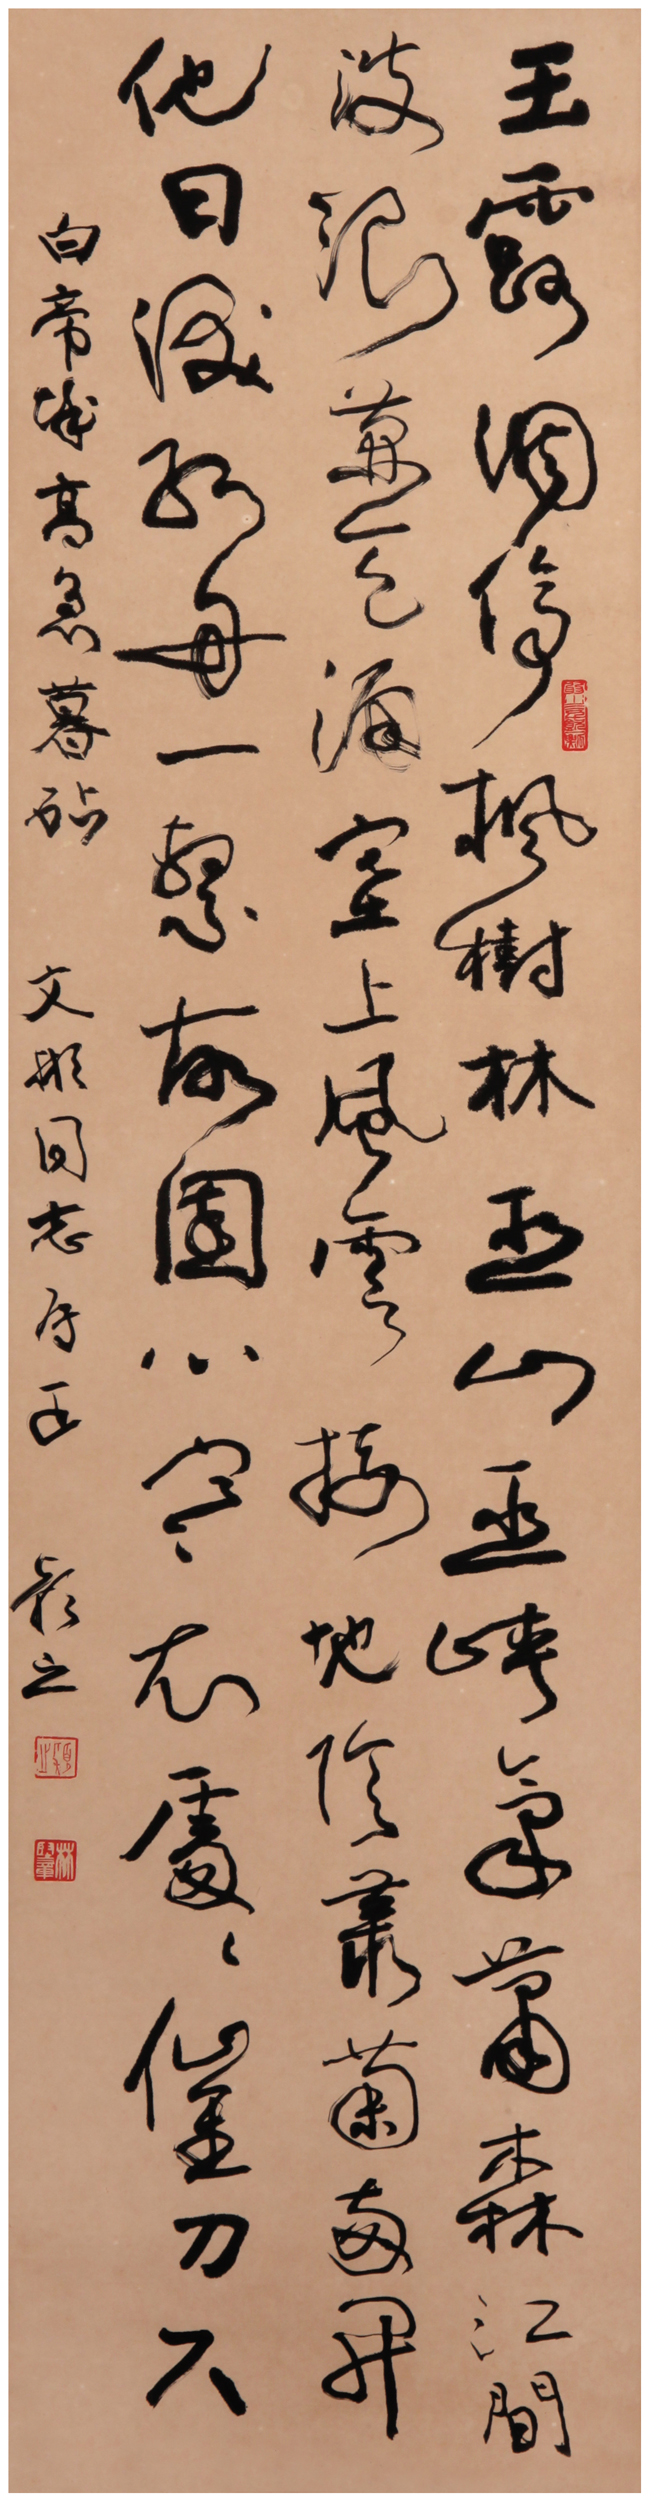 玉露凋傷楓樹林巫山巫峽氣蕭森江間
波浪兼天湧塞上風雲接地陰叢菊兩開
他日淚孤舟一繫故園心寒衣處々催刀尺
白帝城高急暮砧 文彬同志屬正 穎之